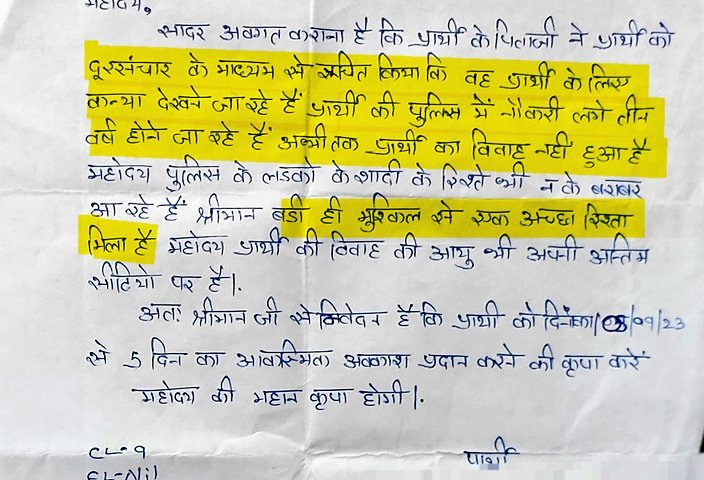 महोदय,
सादर अवगत कराना है कि प्रार्थी के पिताजी ने प्रार्थी को
दूरसंचार के माध्यम से सूचित किया कि वह प्रार्थी के लिए
कन्या देखने जा रहे हैं प्रार्थी की पुलिस में नौकरी लगे तीन
वर्ष होने जा रहे हैं अभी तक प्रार्थी का विवाह नहीं हुआ है
महोदय पुलिस के लडको के शादी के रिश्ते भी न के बराबर
आ रहे हैं श्रीमान बडी ही मुश्किल से एक अच्छा रिश्ता
मिला है महोदय प्रार्थी की विवाह की आयु भी अपनी अन्तिम
सीढियो पर है।.
अतः श्रीमान जी से निवेदन है कि प्रार्थी को दिनांक /09/23
से 5 दिन का आकस्मिक अवकाश प्रदान करने की कृपा करें
महोदय की महान कृपा होगी।.
CL-9
EL-Nil
प्रार्थी